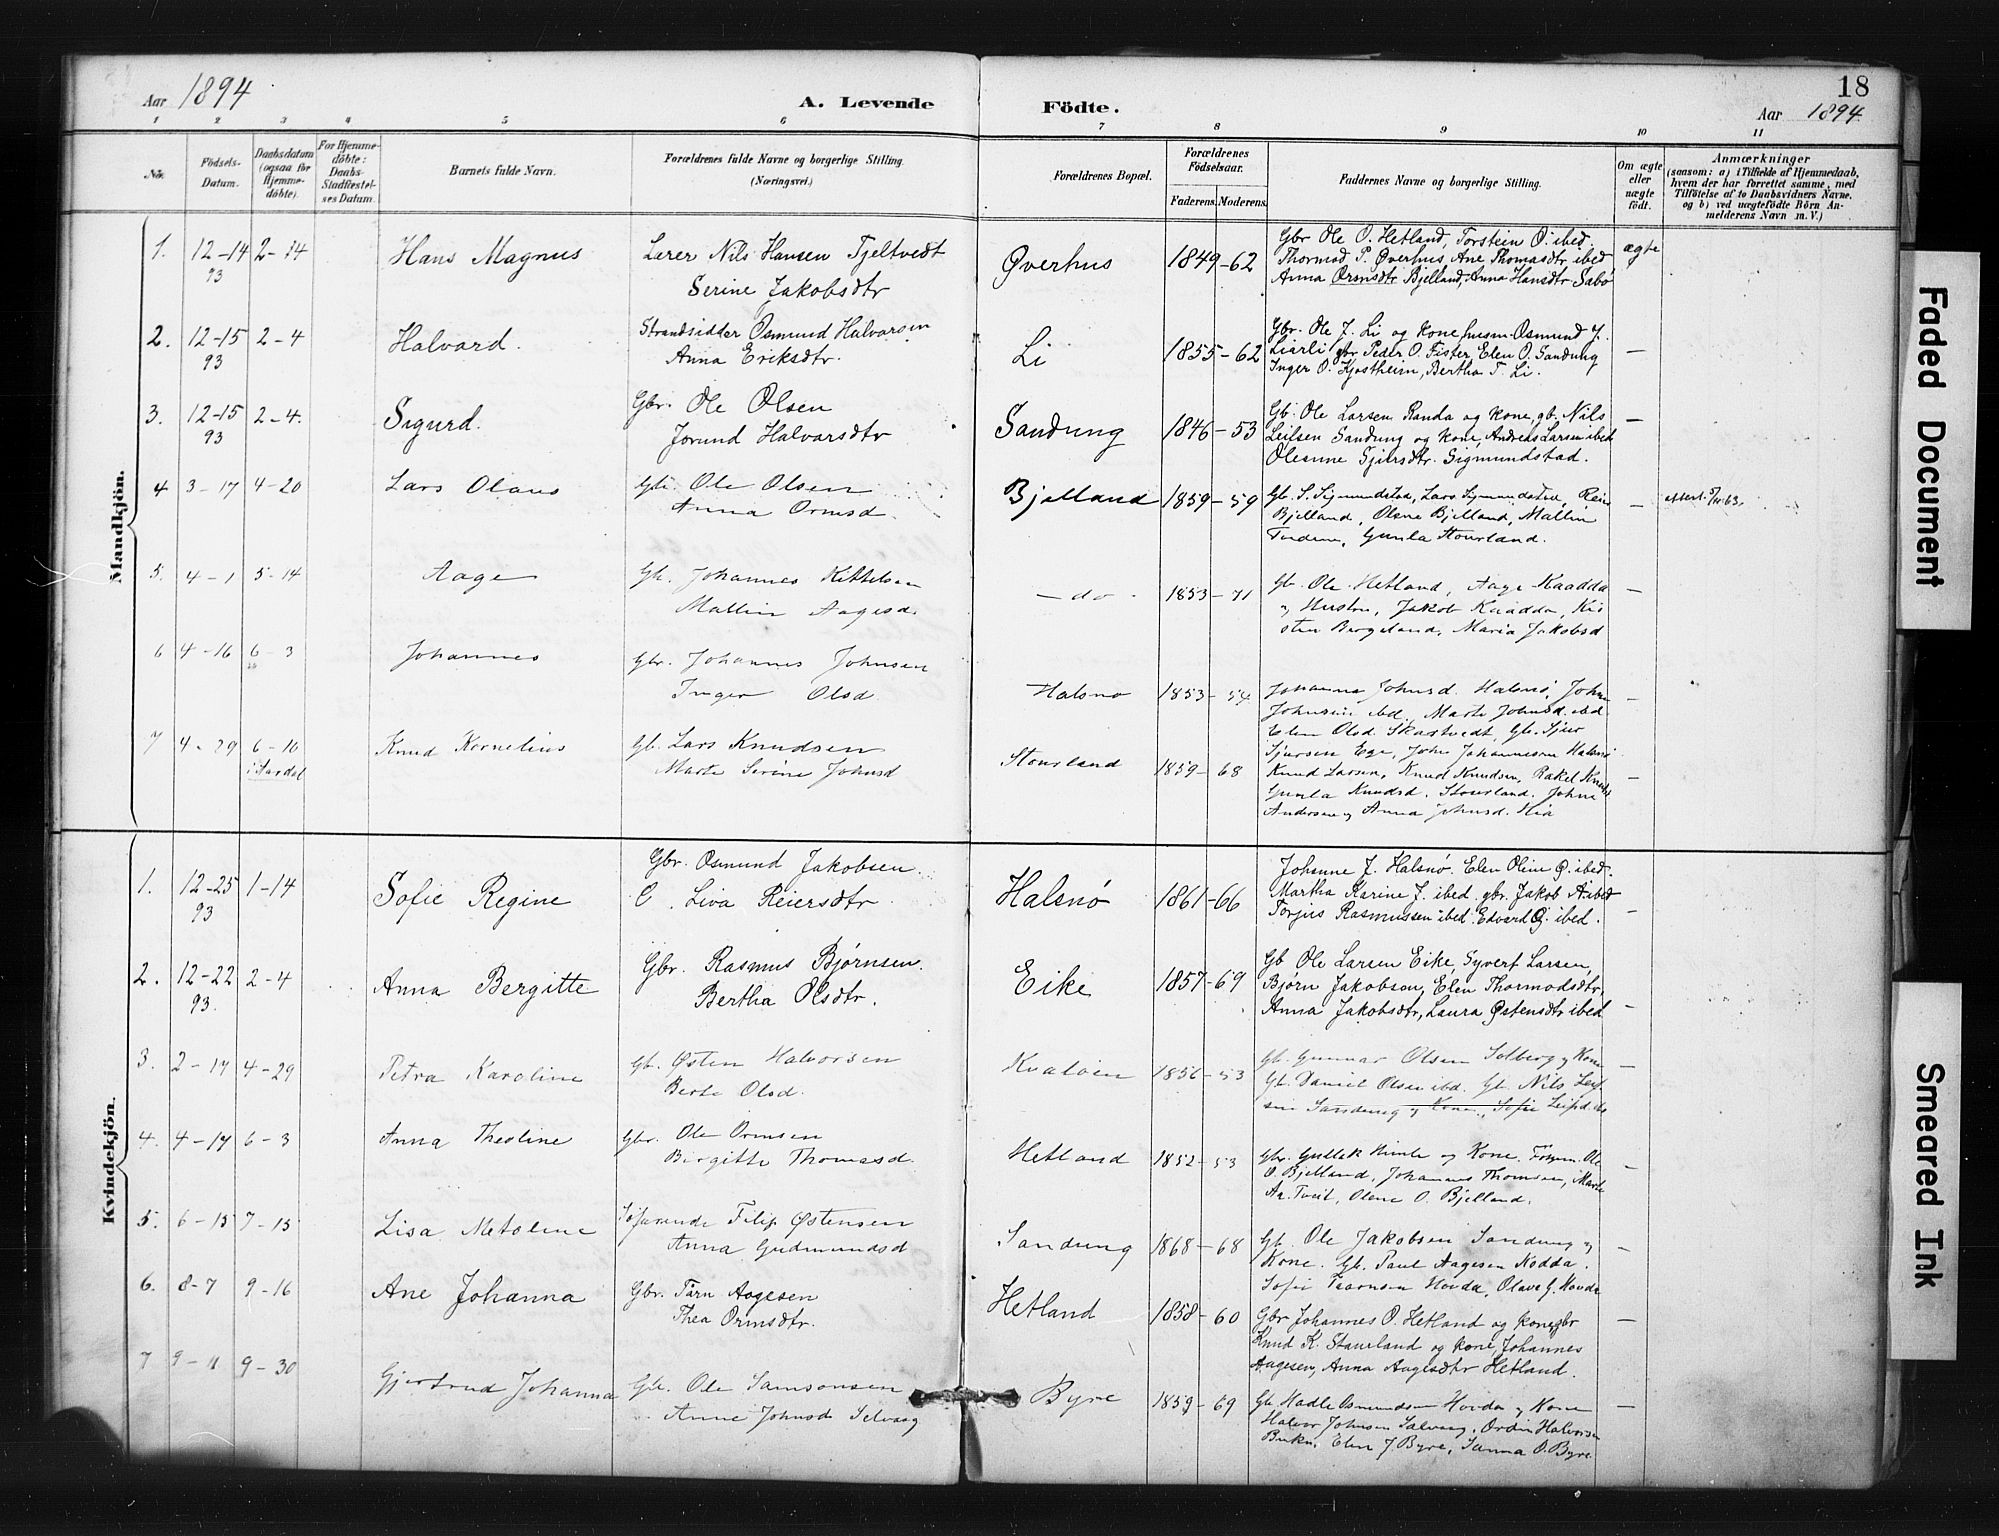 18
Aar 1894
A. Levende Födte.
Aar 1894
1 2 3 4 5 6 7 8 9 10 11
No. Födsels-Datum. Daabsdatum (ogsaa for Hjemmedöbte). For Hjemmedöbte: Daabs-Stadfæstelses Datum. Barnets fulde Navn. Forældrenes fulde Navne og borgerlige Stilling. (Næringsvei.) Forældrenes Bopæl. Forældrenes Födselsaar. Faderens. Moderens. Faddernes Navne og borgerlige Stilling. Om ægte eller uægte födt. Anmærkninger (saasom: a) i Tilfælde af Hjemmedaab, hvem der har forrettet samme, med Tilföielse af to Daabsvidners Navne, og b) ved uægtefödte Börn Anmelderens Navn m. V.)
Mandkjön.
1. 12-14 93 2-14 Hans Magnus Lærer Nils Hansen Tjeltvedt
Serine Jakobsdtr
Øverhus 1849-62
Gbr Ole O. Hetland, Torstein O. ibed.
Thormod P. Øverhus Ane Thomasdtr ibed
Anna Ormsdtr Bjelland, Anna Hansdtr Sabø
ægte
2. 12-15 93 2-4 Halvard. Strandsidder Osmund Halvorsen
Anna Eriksdtr.
Li 1855-62
Gbr. Ole J. Li og kone husm. Osmund J.
Liarli gbr Peder O. Fister, Elen O. Sandung
Inger O. Kjostheim, Bertha T. Li.
—
3. 12-15 93 2-4. Sigurd. Gbr. Ole Olsen
Jorund Halvarsdtr
Sandung 1846-53
Gb. Ole Larsen Randa og kone, gb. Nils
Leifsen Sandung og kone, Andreas Larsen ibed
Olesine Sjursdtr. Sigmundstad.
—
4 3-17 4-20 Lars Olaus Gb. Ole Olsen
Anna Ormsd.
Bjelland 1859-59
Gb. S. Sigmundstad, Lars Sigmundstad,
Bjelland, Olene Bjelland, Mallin
Gunla Stourland.
—
5. 4-1 5-14 Aage Gb. Johannes Kittelsen
Mallin Aagesd.
— do — 1853-71
Gb. Ole Hetland, Aage Kaadda
og Hustru, Jakob Kaadda, Kir
sten Bergeland, Maria Jakobsd
—
6 4-16 6-3 Johannes Gbr. Johannes Johnsen
Inger Olsd.
Halsnø 1853-54
Johanna Johnsd. Halsnø, John
Johnsen ibd, Marte Johnsd. ibd
Elen Olsd Skartvedt, Gb. Sjur
Sjursen Ege, John Johannesen Halsnø
—
7 4-29 6-10 i Aardal Knud Kornelius Gb. Lars Knudsen
Marte Serine Johnsd
Stourland 1859-68
Knud Larsen, Knud Knudsen, Rakel Knudsd
Gunla Knudsd. Stourland. John
Andersen og Anna Johnsd.
—
Kvindekjön.
1. 12-25 93 1-14 Sofie Regine Gbr. Osmund Jakobsen.
O. Liva Reiersdtr
Halsnø 1861-66
Johanne J. Halsnø. Elen Oline O. ibed.
Martha Karine J. ibed. gbr. Jakob A. ibed
Torjus Rasmussen ibed. Edvard O. ibed.
—
2. 12-22 93. 2-4 Anna Bergitte Gbr. Rasmus Bjørnsen.
Bertha Olsdtr.
Eike 1857-69
Gb Ole Larsen Eike, Syvert Larsen,
Bjørn Jakobsen, Elen Thormodsdtr,
Anna Jakobsdtr, Laura Østensdtr ibed
—
3. 2-17 4-29 Petra Karoline Gb. Østen Halvorsen
Berte Olsd.
Kvaløen 1856-53
Gb. Gunnar Olsen Solberg og Kone
Gb. Daniel Olsen ibd. Gb. Nils Leif
sen Sandung og Kone, Sofie Leifsd ibd
—
4. 4-17 6-3 Anna Theoline Gbr. Ole Ormsen
Birgitte Thomasd.
Hetland 1852-53
Gbr. Gullek Kimle og Kone. Ole
O. Bjelland, Johannes Thomsen, Marte
Aa. Tveit, Olene O. Bjelland.
—
5. 6-15 7-15 Lisa Metoline Søfarende Filip Østensen
Anna Gudmundsd
Sandung 1868-68
Gb. Ole Jakobsen Sandung og
Kone. Gb. Paul Aagesen Kodda.
Sofie Hovda, Olave G. Hovda
—
6. 8-7 9-16 Ane Johanna Gbr. Tårn Aagesen
Thea Ormsdtr.
Hetland 1858-60
Gbr Johannes O. Hetland og kone, gbr
Knud K. Staurland og kone, Johannes
Aagesen, Anna Aagesdtr Hetland.
—
7 9-11 9-30 Gjertrud Johanna Gb. Ole Samsonsen
Anne Johnsd Selvaag
Byre 1859-69
Gb. Hadle Osmundsen Hovda og Kone
Halvor Johnsen Salvaag, Ordin Halvorsen
Bukn, Elen J. Byre, Sanna O. Byre
—
Faded Document
Smeared Ink